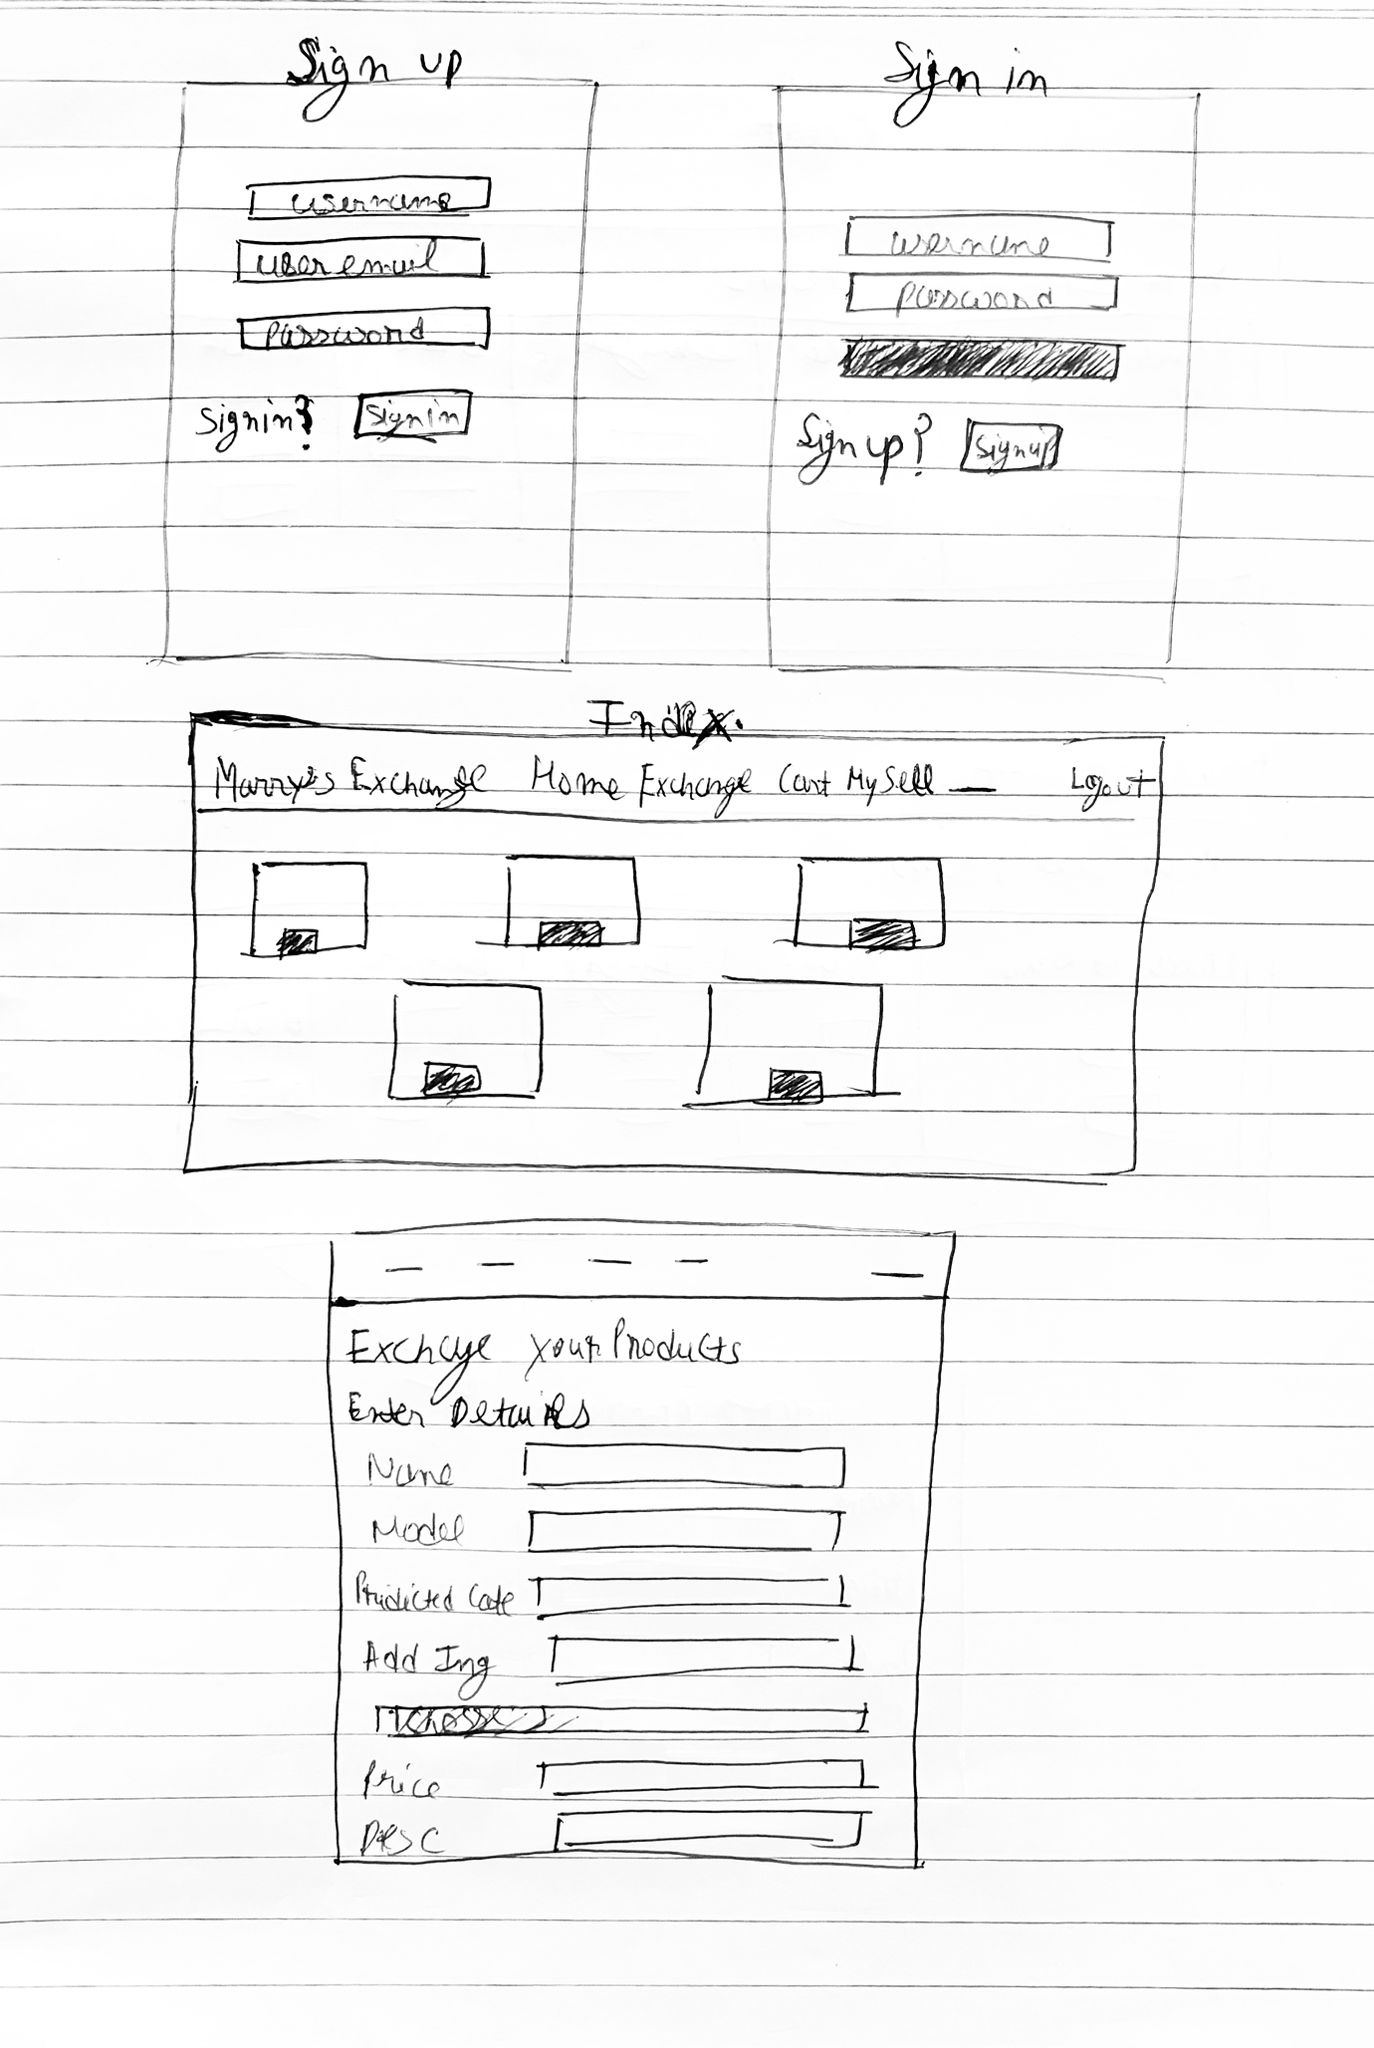 Sign up
username
user email
password
Signin? Signin
Sign in
username
password
Sign up? Signup
Index.
Marry's Exchange Home Exchange Cart My Sell Logout
Exchage your Products
Enter Details
Name
Model
Add Img
Price
Desc